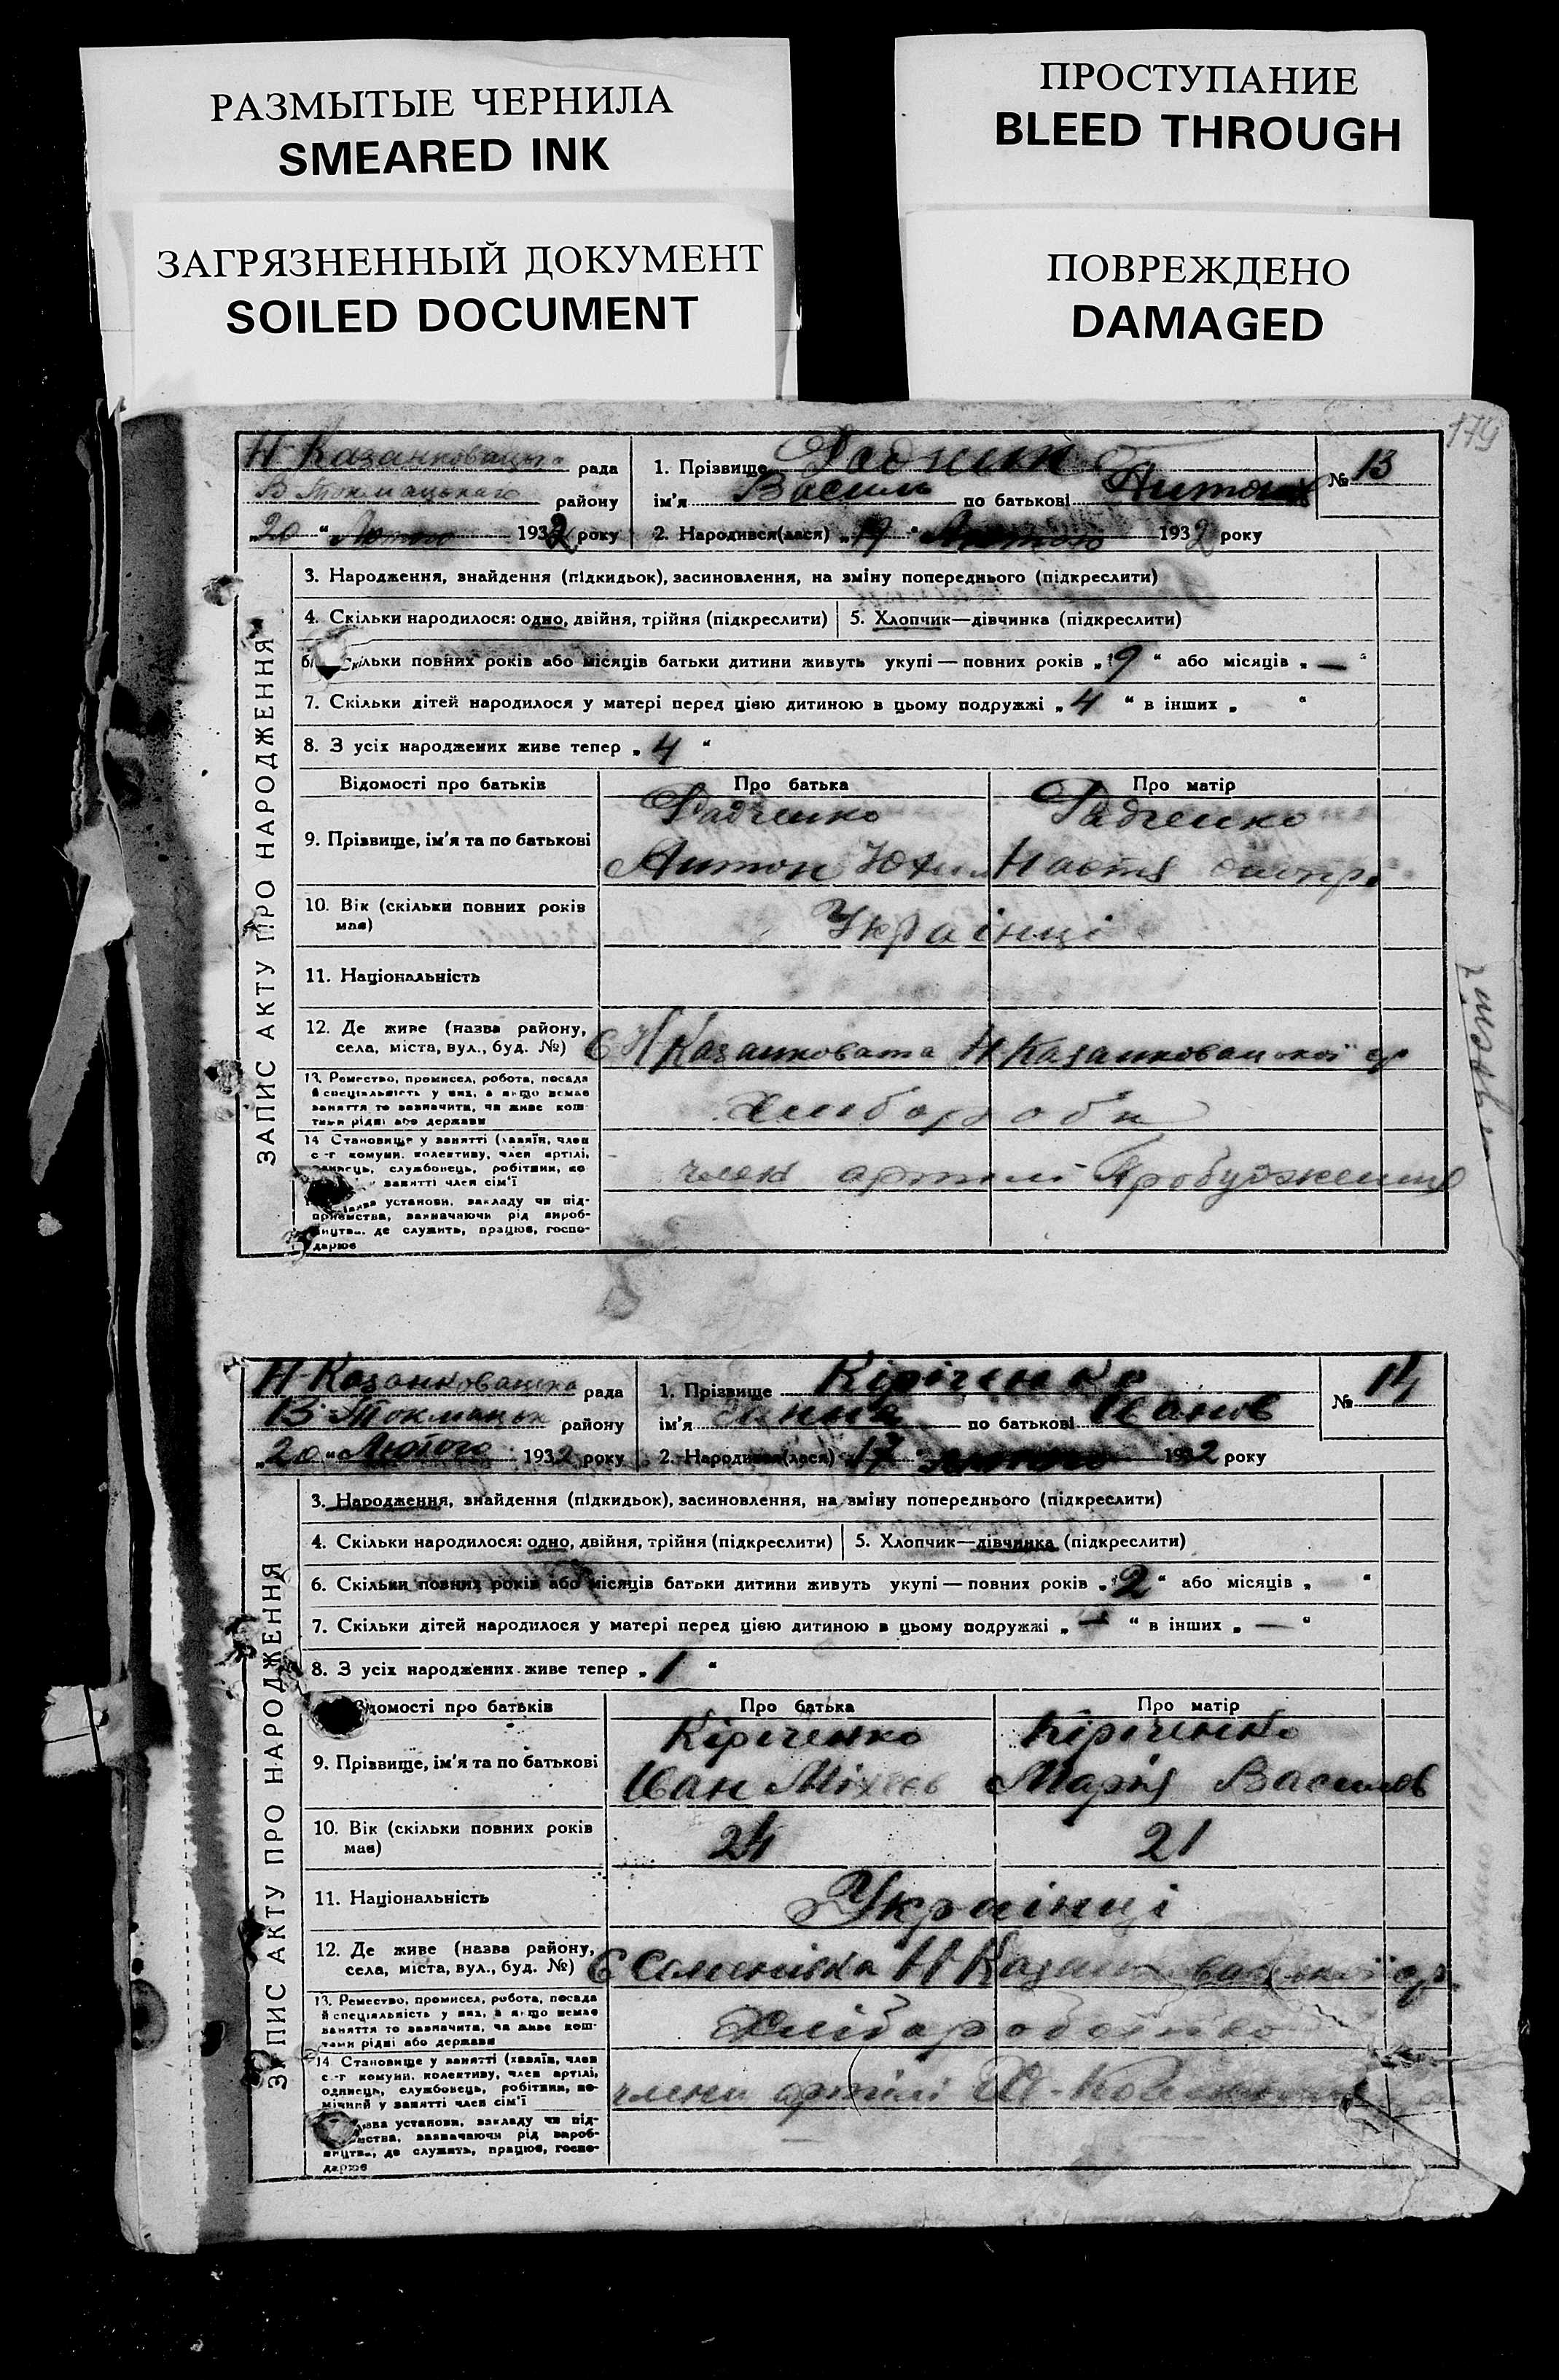 РАЗМЫТЫЕ ЧЕРНИЛА
SMEARED INK
ЗАГРЯЗНЕННЫЙ ДОКУМЕНТ
SOILED DOCUMENT
ПРОСТУПАНИЕ
BLEED THROUGH
ПОВРЕЖДЕНО
DAMAGED
179
Н-Казанковацька рада
В Токмацького району
„20 “ Лютого 1932 року
1. Прізвище
ім'я Василь по батькові Антонов
2. Народився(лася) „19 “ Лютого 1932 року
№ 13
ЗАПИС АКТУ ПРО НАРОДЖЕННЯ
3. Народження, знайдення (підкидьок), засиновлення, на зміну попереднього (підкреслити)
4. Скільки народилося: одно, двійня, трійня (підкреслити)
5. Хлопчик—дівчинка (підкреслити)
6. Скільки повних років або місяців батьки дитини живуть укупі — повних років „ 9 “ або місяців „ — “
7. Скільки дітей народилося у матері перед цією дитиною в цьому подружжі „ 4 “ в інших „ “
8. З усіх народжених живе тепер „ 4 “
Відомості про батьків
Про батька
Про матір
9. Прізвище, ім'я та по батькові
Радченко
Антон Юхим
Радченко
Настя
10. Вік (скільки повних років
має)
Українці
11. Національність
12. Де живе (назва району,
села, міста, вул., буд. №)
С Н Казанковата Н Казанковацької ср
13. Ремество, промисел, робота, посада
й спеціяльність у них, а якщо немає
заняття то зазначити, чи живе кош-
тами рідні або держави
Хлибороби
14 Становище у занятті (хазяїн, член
с.-г комуни, колективу, член артілі,
одинець, службовець, робітник, по
занятті член сім'ї
член артілі Пробудження
установи, закладу чи під-
приємства, зазначаючи рід вироб-
ництва, де служить, працює, госпо-
дарює
Н-Казанковацька рада
В-Токмацьк району
„20 “ Лютого 1932 року
1. Прізвище Кіріченко
ім'я Ганна по батькові Іванов
2. Народився(лася) „17 “ Лютого 1932 року
№ 14
ЗАПИС АКТУ ПРО НАРОДЖЕННЯ
3. Народження, знайдення (підкидьок), засиновлення, на зміну попереднього (підкреслити)
4. Скільки народилося: одно, двійня, трійня (підкреслити)
5. Хлопчик—дівчинка (підкреслити)
6. Скільки повних років або місяців батьки дитини живуть укупі — повних років „ 2 “ або місяців „ “
7. Скільки дітей народилося у матері перед цією дитиною в цьому подружжі „ — “ в інших „ — “
8. З усіх народжених живе тепер „ 1 “
Відомості про батьків
Про батька
Про матір
9. Прізвище, ім'я та по батькові
Кіріченко
Іван Міхеєв
Кіріченко
Марія Василев
10. Вік (скільки повних років
має)
24
21
11. Національність
Українці
12. Де живе (назва району,
села, міста, вул., буд. №)
С Семенівка Н Казанковацької ср.
13. Ремество, промисел, робота, посада
й спеціяльність у них, а якщо немає
заняття то зазначити, чи живе кош-
тами рідні або держави
14. Становище у занятті (хазяїн, член
с.-г комуни, колективу, член артілі,
одинець, службовець, робітник, по-
мічний у занятті член сім'ї
члени артілі
установи, закладу чи під-
приємства, зазначаючи рід вироб-
ництва, де служить, працює, госпо-
дарює